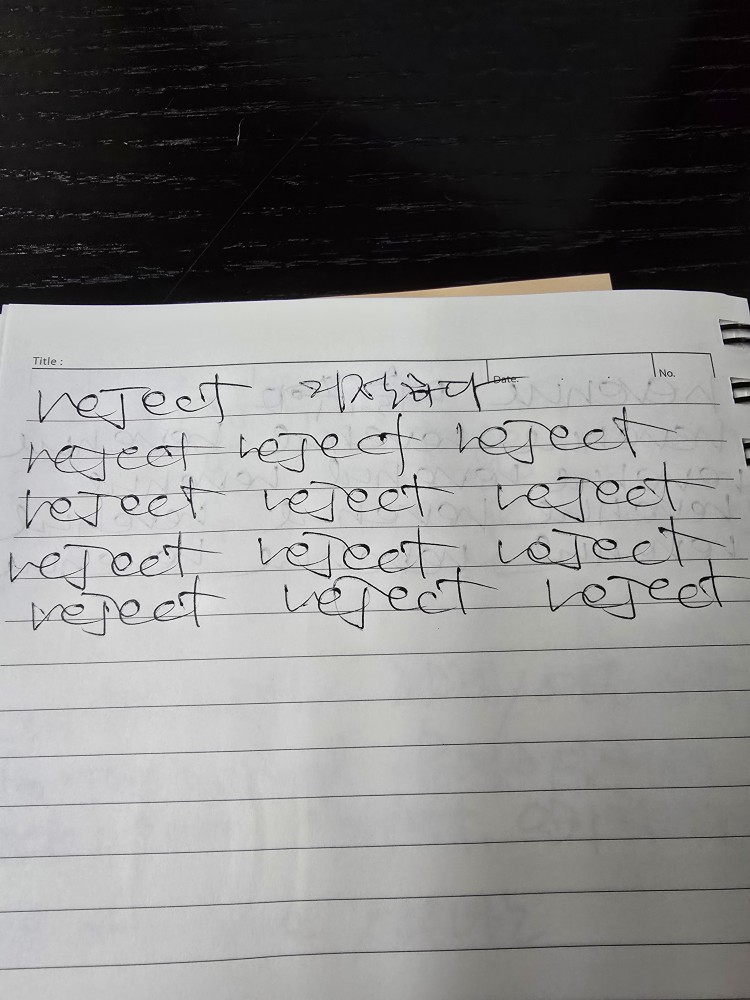 Title :
Date.
No.
reject 거절하다
reject reject reject
reject reject reject
reject reject reject
reject reject reject